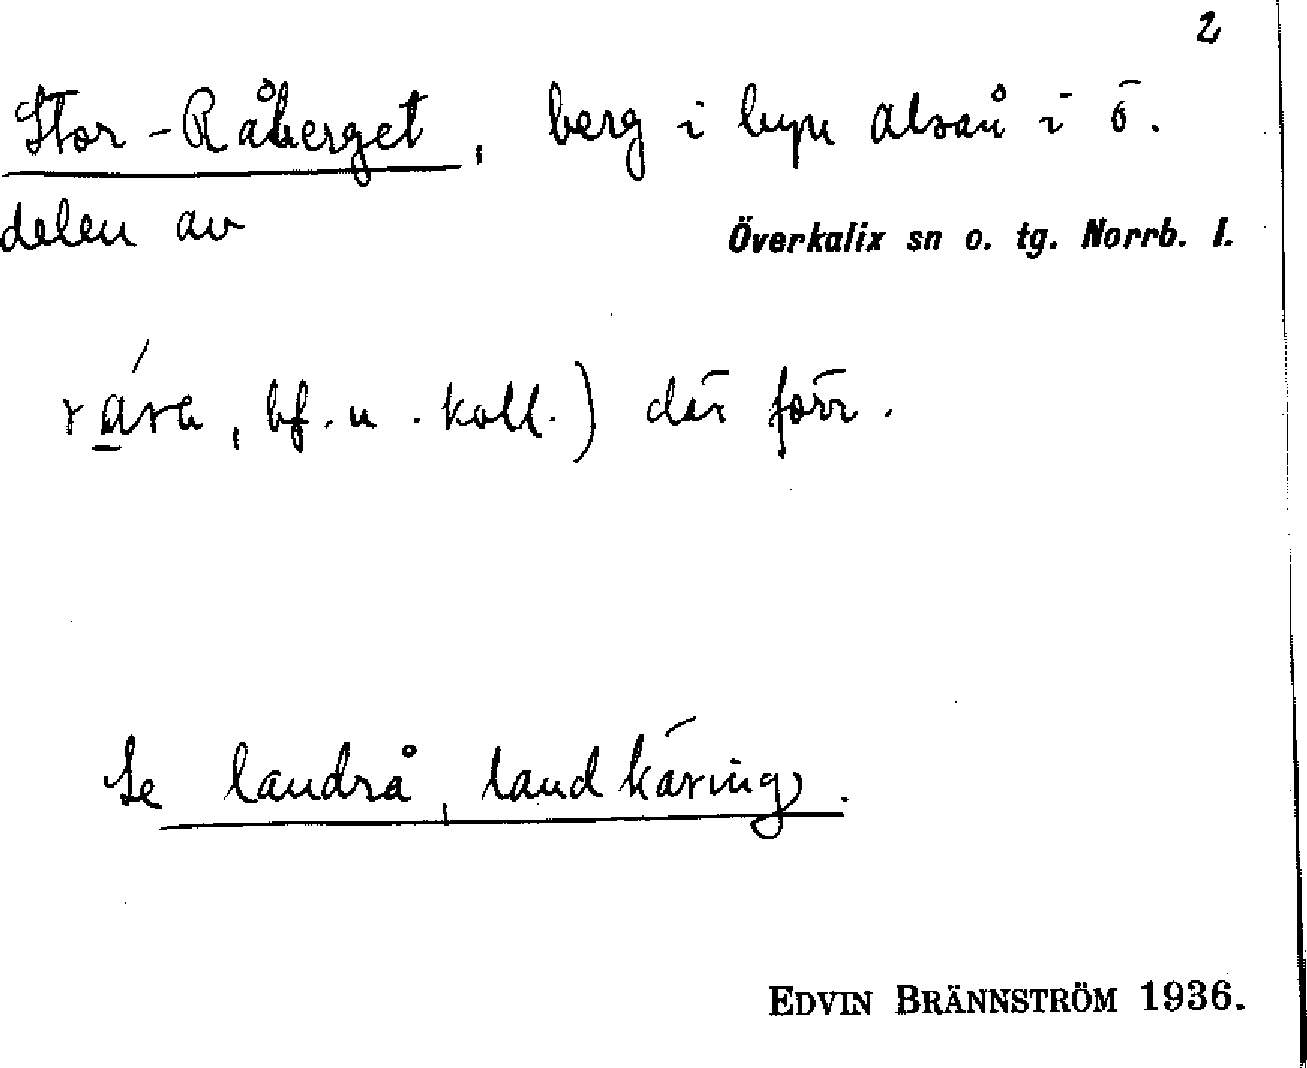 2
Stor-Råberget, berg i byn Alsån i ö.
delen av Överkalix sn o. tg. Norrb. l.
bf. n. koll.) där förr.
Se landrå, landkäring.
EDVIN BRÄNNSTRÖM 1936.